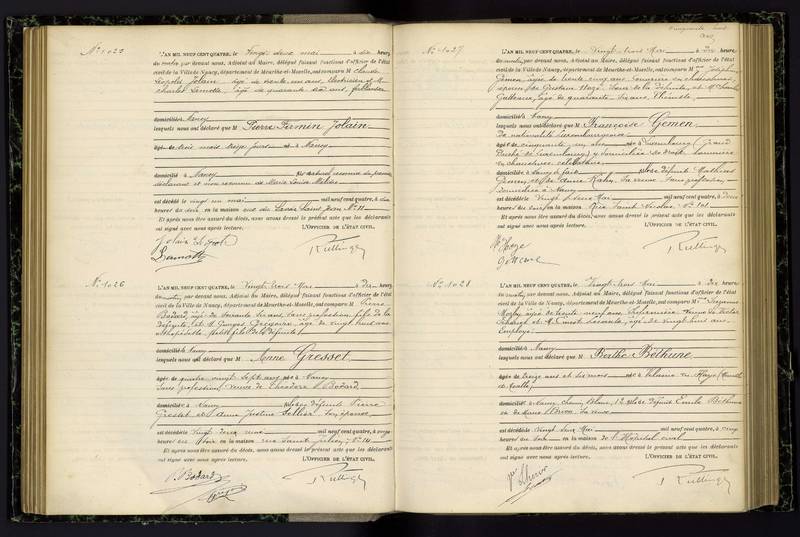 N° 1025
L'AN MIL NEUF CENT QUATRE, le Vingt deux mai à dix heures
du matin par devant nous, Adjoint au Maire, délégué faisant fonctions d'officier de l'état
civil de la Ville de Nancy, département de Meurthe-et-Moselle, ont comparu M Claude
Léopold Jolain, âgé de trente un ans, et M
Charles Lamotte, âgé de quarante ans, ferblantier
domiciliés à Nancy
lesquels nous ont déclaré que M Pierre Firmin Jolain
âgé de trois mois jours né à Nancy
domicilié à Nancy fils naturel reconnu du premier
déclarant et non reconnu de Marie Louise
est décédé le vingt un mai mil neuf cent quatre, à
heures du soir en la maison rue Saint Jean N° 11
Et après nous être assuré du décès, avons dressé le présent acte que les déclarants
ont signé avec nous après lecture. L'OFFICIER DE L'ÉTAT CIVIL,
Jolain
Lamotte
N° 1026
L'AN MIL NEUF CENT QUATRE, le Vingt trois Mai à Dix heures
du matin, par devant nous, Adjoint au Maire, délégué faisant fonctions d'officier de l'état
civil de la Ville de Nancy, département de Meurthe-et-Moselle, ont comparu M Pierre
Bodard, âgé de soixante ans, sans profession, fils de la
défunte, et M. Georges Grégoire, âgé de vingt huit ans
petit fils de la défunte
domiciliés à Nancy
lesquels nous ont déclaré que M Anne Gresset
âgée de quatre vingt sept ans née à Nancy
sans profession, veuve de Théodore Bodard
domiciliée à Nancy fille des défunts Pierre
Gresset et Anne Justine son épouse
est décédée le Vingt deux mai mil neuf cent quatre, à onze
heures du soir en la maison rue Saint Julien, N° 14
Et après nous être assuré du décès, avons dressé le présent acte que les déclarants
ont signé avec nous après lecture. L'OFFICIER DE L'ÉTAT CIVIL,
P. Bodard
N° 1027
L'AN MIL NEUF CENT QUATRE, le Vingt trois Mai à Dix heures
du matin, par devant nous, Adjoint au Maire, délégué faisant fonctions d'officier de l'état
civil de la Ville de Nancy, département de Meurthe-et-Moselle, ont comparu M
Gemen, âgée de trente cinq ans,
épouse de Gustave Hazé, sœur de la défunte, et M. Charles
âgé de quarante six ans,
domiciliés à Nancy
lesquels nous ont déclaré que M Françoise Gemen
de nationalité Luxembourgeoise
âgée de cinquante un ans née à Luxembourg (Grand
Duché de Luxembourg) y domiciliée de droit,
célibataire
domiciliée à Nancy de fait fille de défunt Mathias
Gemen et de Anne Kahn, sa veuve, sans profession
domiciliée à Nancy
est décédée le Vingt deux Mai mil neuf cent quatre, à Deux
heures du soir en la maison Rue Saint Nicolas, N° 101
Et après nous être assuré du décès, avons dressé le présent acte que les déclarants
ont signé avec nous après lecture. L'OFFICIER DE L'ÉTAT CIVIL,
N° 1028
L'AN MIL NEUF CENT QUATRE, le Vingt trois Mai à Dix heures
du matin, par devant nous, Adjoint au Maire, délégué faisant fonctions d'officier de l'état
civil de la Ville de Nancy, département de Meurthe-et-Moselle, ont comparu M Suzanne
âgée de trente neuf ans, Infirmière, veuve de
et M. Ernest âgé de vingt huit ans
Employé
domiciliés à Nancy
lesquels nous ont déclaré que M Berthe Béthune
âgée de treize ans et six mois née à Blainv en Haye (Meurthe
et Moselle)
domiciliée à Nancy, Chemin Blanc, 12 fille de défunt Emile Béthune
et de Marie sa veuve
est décédée le Vingt deux Mai mil neuf cent quatre, à cinq
heures du soir en la maison de l'Hôpital civil
Et après nous être assuré du décès, avons dressé le présent acte que les déclarants
ont signé avec nous après lecture. L'OFFICIER DE L'ÉTAT CIVIL,